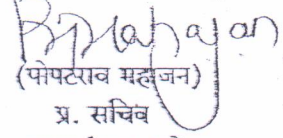 PMahajan
(पोपटराव महाजन)
प्र. सचिव